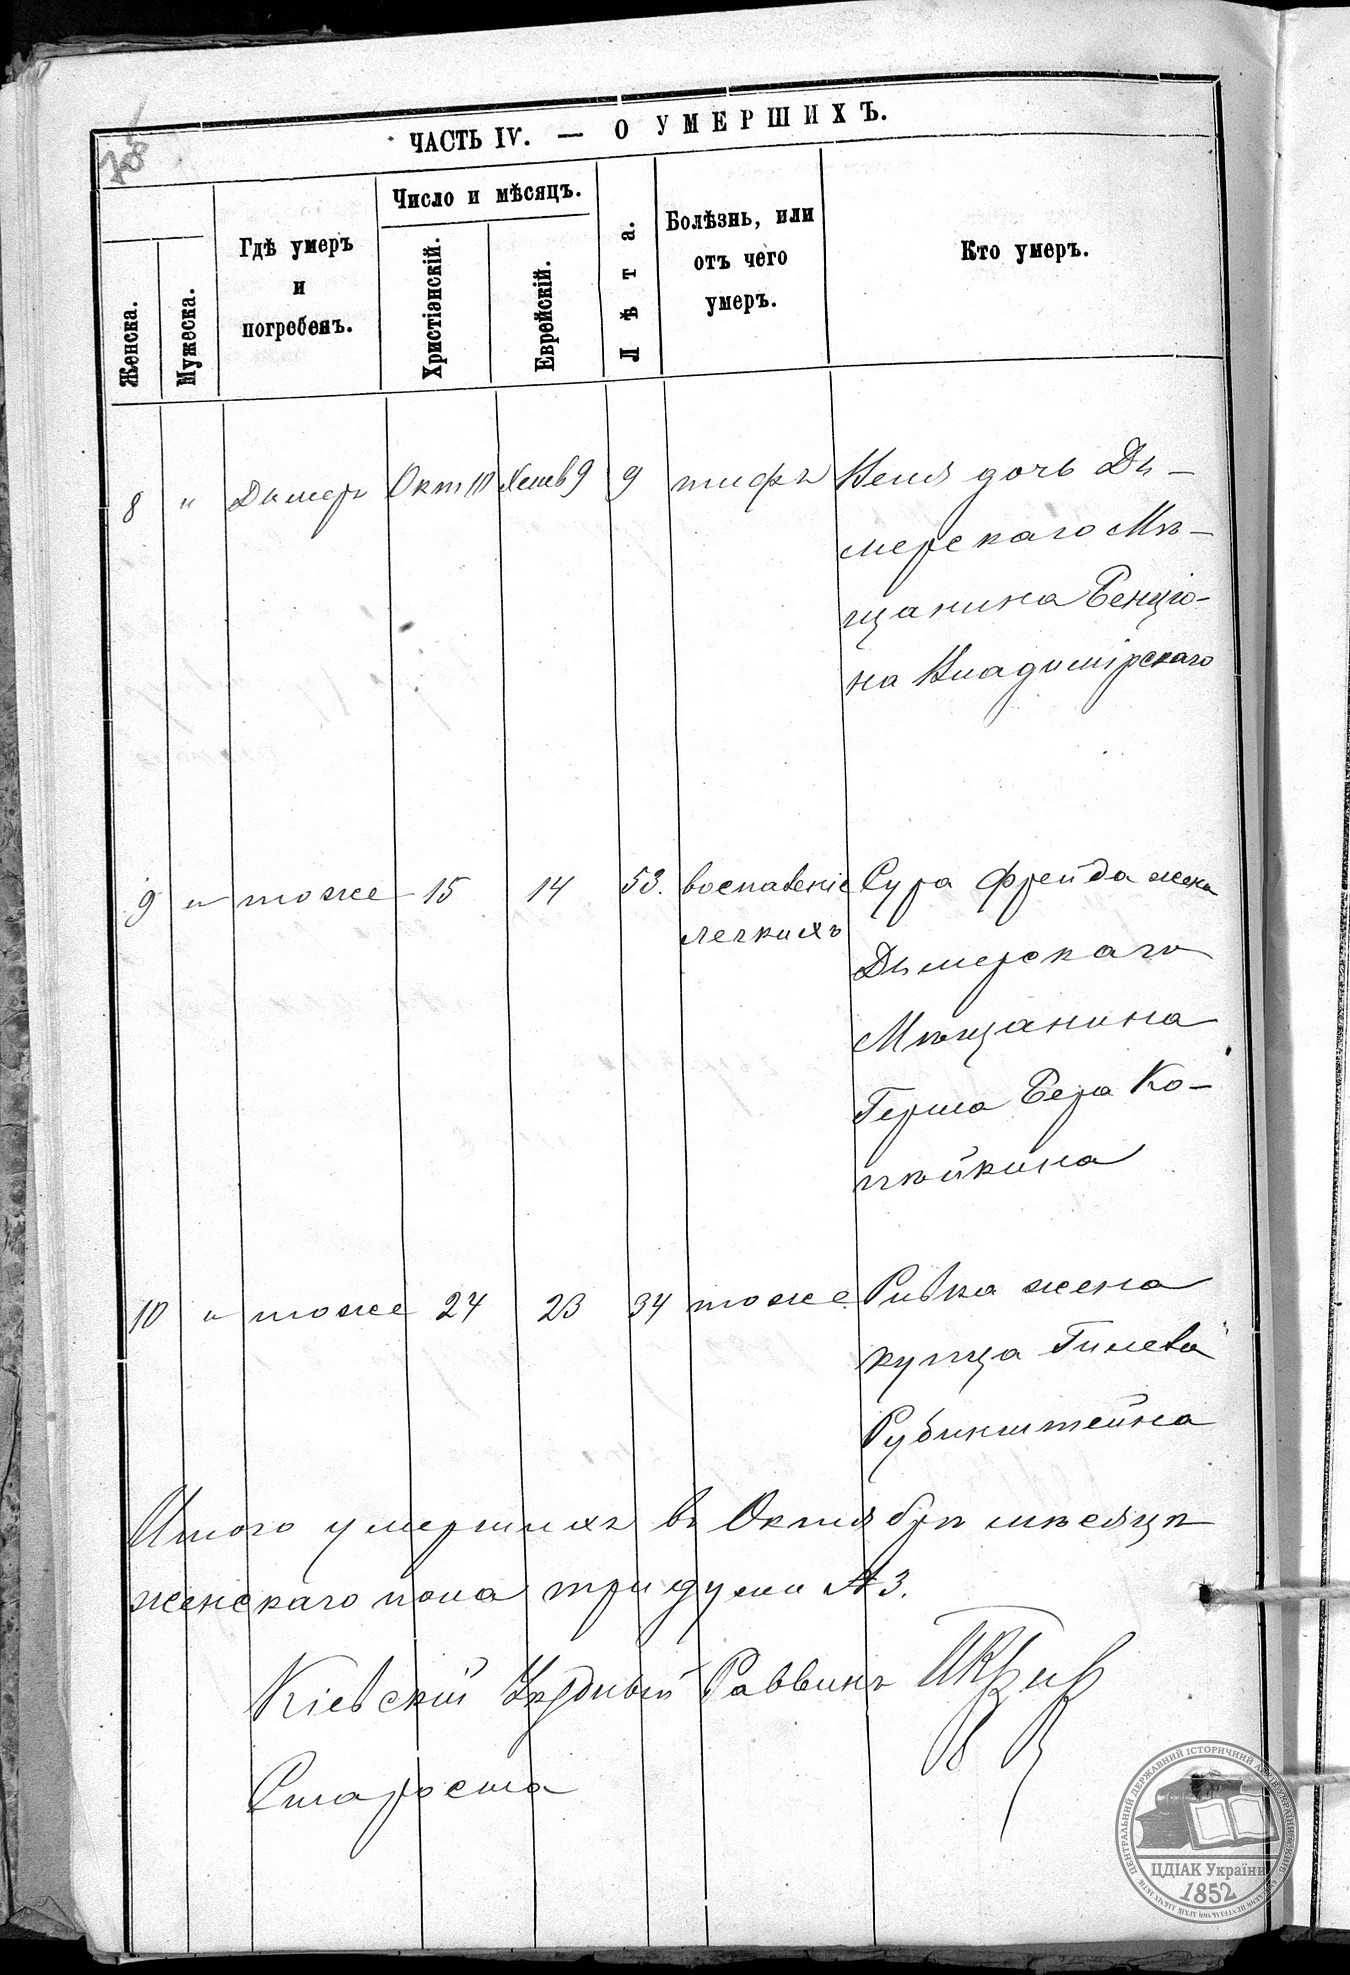 ЧАСТЬ IV. — О УМЕРШИХЪ.
Женска.
Мужеска.
Гдѣ умеръ
и
погребенъ.
Число и мѣсяцъ.
Христіанскій.
Еврейскій.
Лѣта.
Болѣзнь, или
отъ чего
умеръ.
Кто умеръ.
8 " Дымеръ Окт 10 Хешв 9 9 тифъ
дочь Ды-
мерскаго Мѣ-
щанина Бенціо-
на Владимірскаго
9 " тоже 15 14 53. воспаленіе
легкихъ
Сура Фрейда жена
Дымерскаго
Мѣщанина
Герша Бера Ко-
пѣйкина
10 " тоже 24 23 34 тоже
Ривка жена
купца
Рубинштейна
Итого умершихъ въ Октябрѣ мѣсяцѣ
женскаго пола три души № 3.
Кіевскій Уѣздный Раввинъ
Староста
ЦЕНТРАЛЬНИЙ ДЕРЖАВНИЙ ІСТОРИЧНИЙ АРХІВ УКРАЇНИ, М. КИЇВ
ЦДІАК України
1852